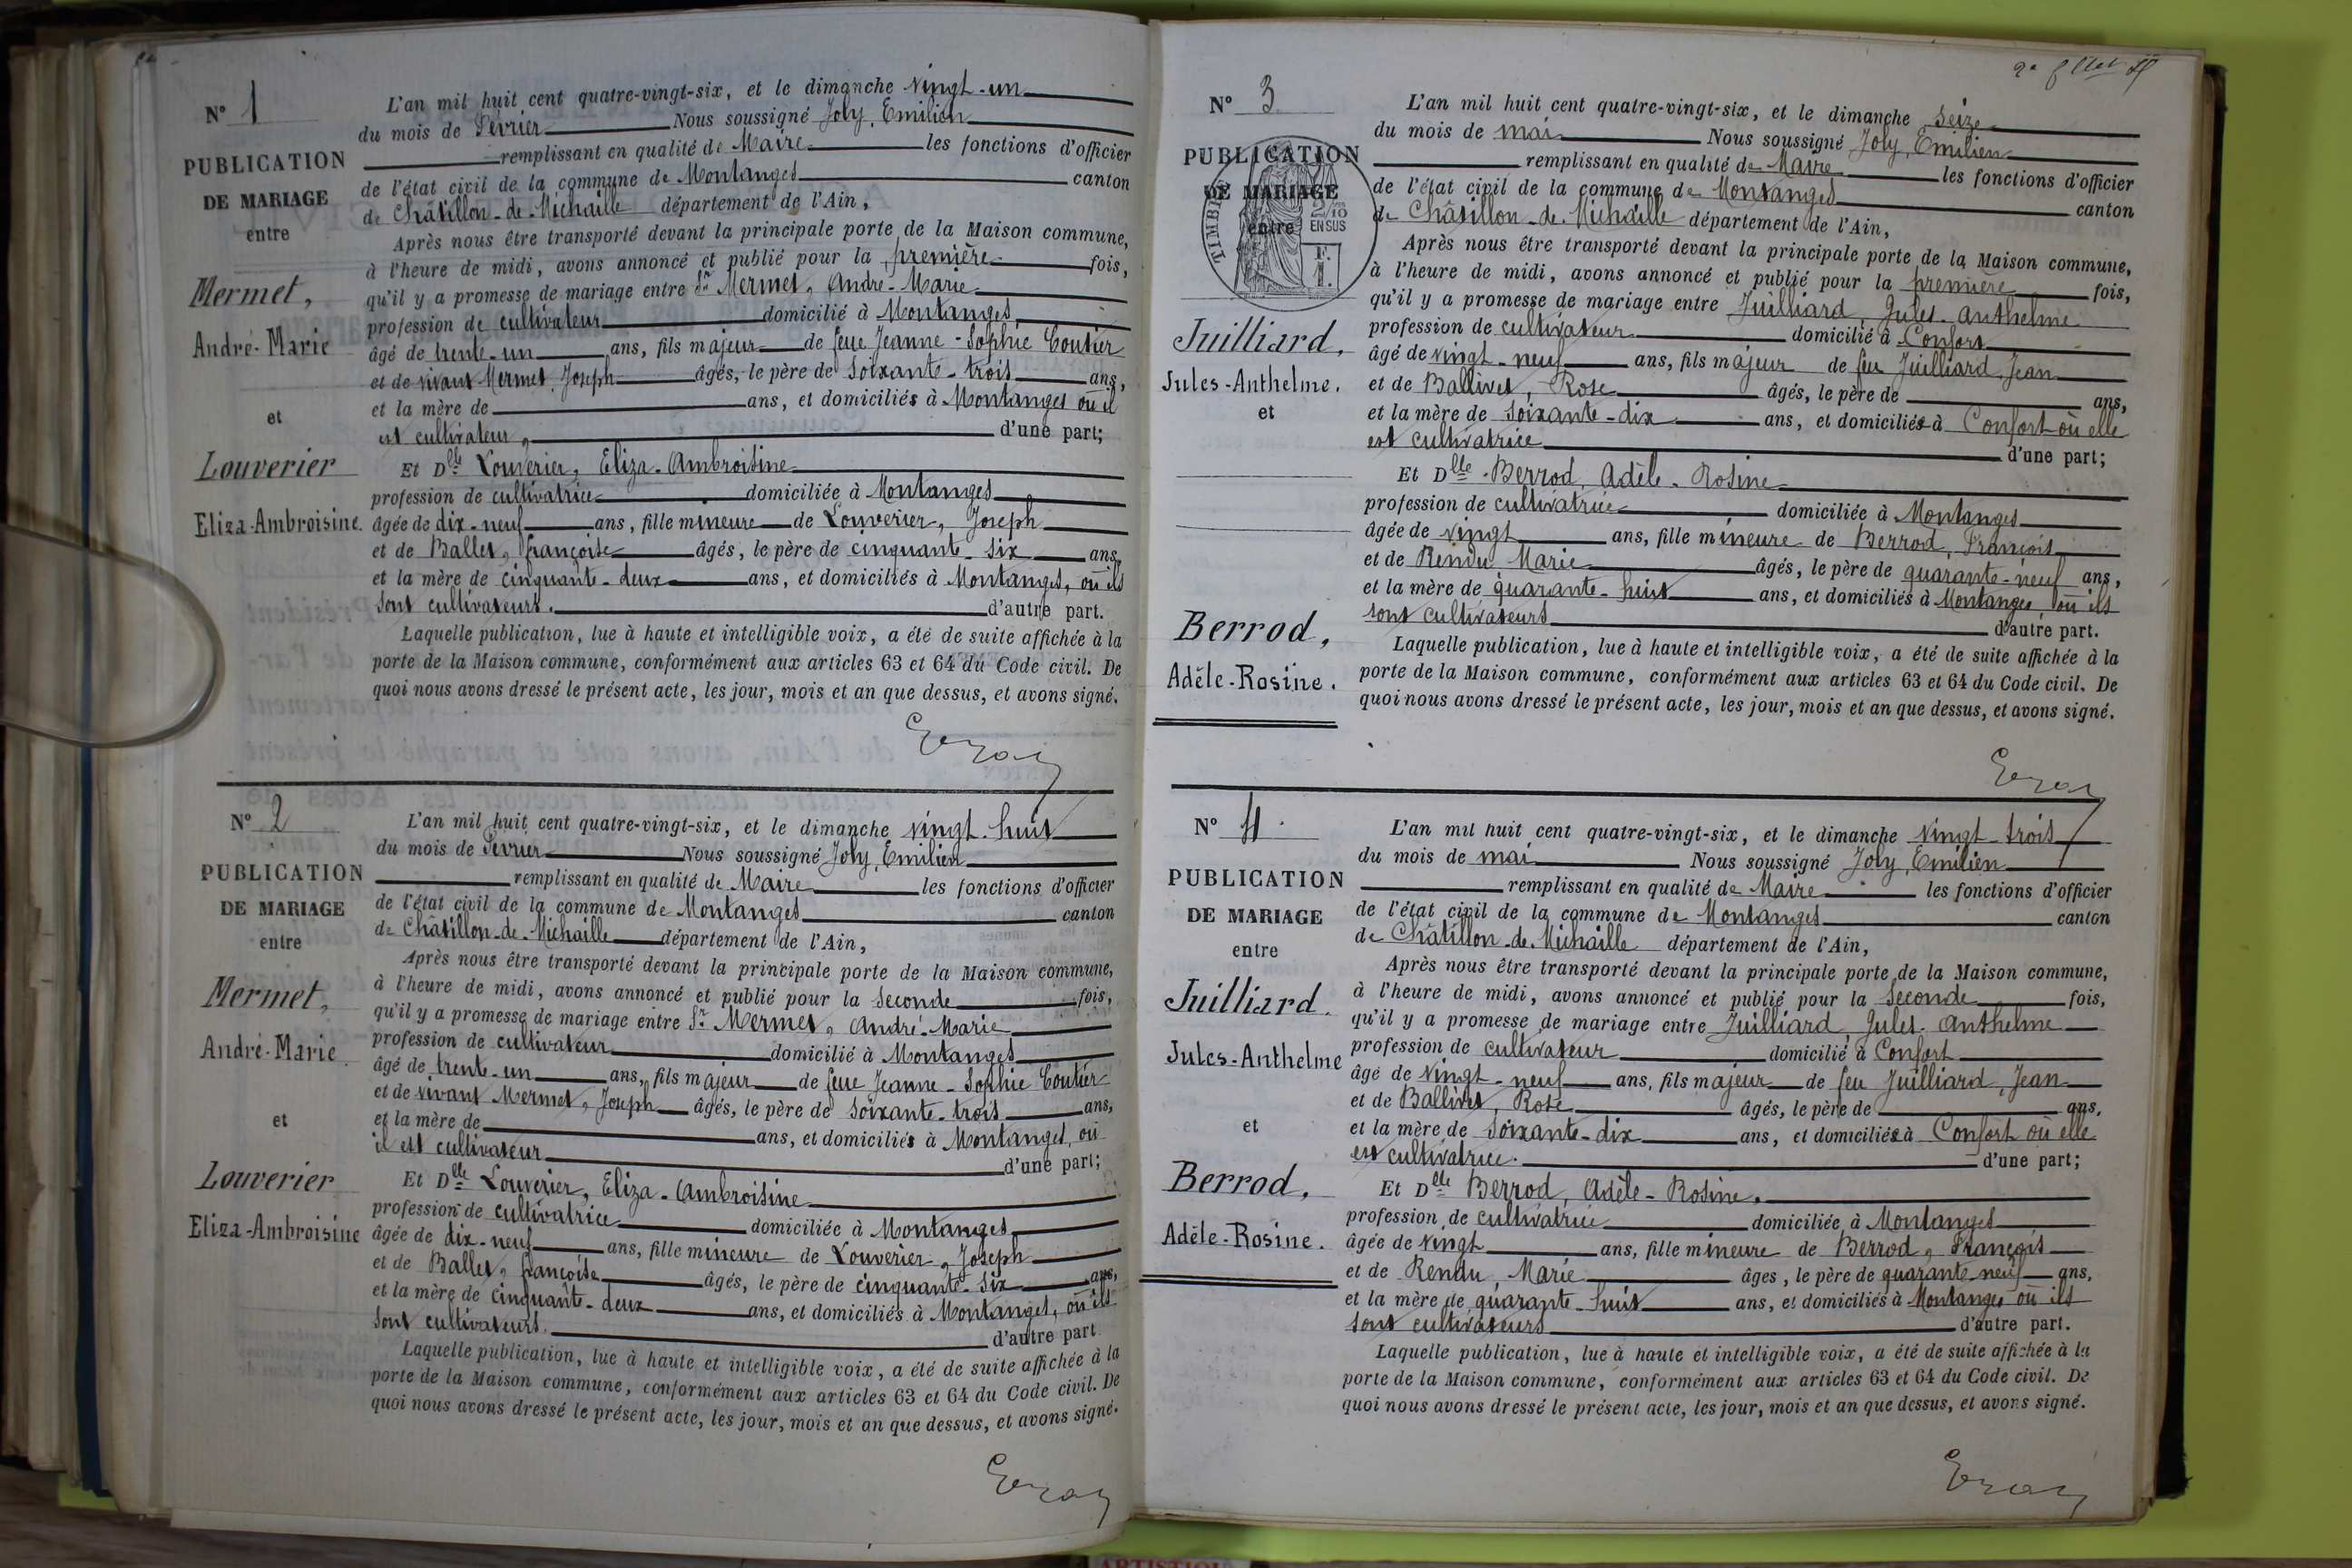 N° 1
PUBLICATION
DE MARIAGE
entre
Mermet,
André-Marie
et
Louverier
Eliza-Ambroisine.
L'an mil huit cent quatre-vingt-six, et le dimanche vingt-un
du mois de Février Nous soussigné Joly, Emilien
remplissant en qualité de Maire les fonctions d'officier
de l'état civil de la commune de Montanges canton
de Châtillon-de-Michaille département de l'Ain,
Après nous être transporté devant la principale porte de la Maison commune,
à l'heure de midi, avons annoncé et publié pour la première fois,
qu'il y a promesse de mariage entre Sr Mermet, André-Marie
profession de cultivateur domicilié à Montanges
âgé de trente-un ans, fils majeur de feue Jeanne-Sophie Coutier
et de vivant Mermet, Joseph âgés, le père de soixante-trois ans,
et la mère de ans, et domiciliés à Montanges où il
est cultivateur, d'une part;
Et Dlle Louverier, Eliza-Ambroisine
profession de cultivatrice domiciliée à Montanges
âgée de dix-neuf ans, fille mineure de Louverier, Joseph
et de Ballet, françoise âgés, le père de cinquante-six ans,
et la mère de cinquante-deux ans, et domiciliés à Montanges, où ils
sont cultivateurs. d'autre part.
Laquelle publication, lue à haute et intelligible voix, a été de suite affichée à la
porte de la Maison commune, conformément aux articles 63 et 64 du Code civil. De
quoi nous avons dressé le présent acte, les jour, mois et an que dessus, et avons signé.
N° 2
PUBLICATION
DE MARIAGE
entre
Mermet,
André-Marie
et
Louverier
Eliza-Ambroisine
L'an mil huit cent quatre-vingt-six, et le dimanche vingt-huit
du mois de Février Nous soussigné Joly, Emilien
remplissant en qualité de Maire les fonctions d'officier
de l'état civil de la commune de Montanges canton
de Châtillon-de-Michaille département de l'Ain,
Après nous être transporté devant la principale porte de la Maison commune,
à l'heure de midi, avons annoncé et publié pour la seconde fois,
qu'il y a promesse de mariage entre Sr Mermet, André-Marie
profession de cultivateur domicilié à Montanges
âgé de trente-un ans, fils majeur de feue Jeanne-Sophie Coutier
et de vivant Mermet, Joseph âgés, le père de soixante-trois ans,
et la mère de ans, et domiciliés à Montanges, où
il est cultivateur d'une part;
Et Dlle Louverier, Eliza-Ambroisine
profession de cultivatrice domiciliée à Montanges
âgée de dix-neuf ans, fille mineure de Louverier, Joseph
et de Ballet, françoise âgés, le père de cinquante-six ans,
et la mère de cinquante-deux ans, et domiciliés à Montanges, où ils
sont cultivateurs. d'autre part
Laquelle publication, lue à haute et intelligible voix, a été de suite affichée à la
porte de la Maison commune, conformément aux articles 63 et 64 du Code civil. De
quoi nous avons dressé le présent acte, les jour, mois et an que dessus, et avons signé.
N° 3
PUBLICATION
DE MARIAGE
entre
TIMBRE
2/10
EN SUS
F.
1.
Juilliard,
Jules-Anthelme.
et
Berrod,
Adèle-Rosine.
L'an mil huit cent quatre-vingt-six, et le dimanche seize
du mois de mai Nous soussigné Joly, Emilien
remplissant en qualité de Maire les fonctions d'officier
de l'état civil de la commune de Montanges canton
de Châtillon-de-Michaille département de l'Ain,
Après nous être transporté devant la principale porte de la Maison commune,
à l'heure de midi, avons annoncé et publié pour la première fois,
qu'il y a promesse de mariage entre Juilliard, Jules-Anthelme
profession de cultivateur domicilié à Confort
âgé de vingt-neuf ans, fils majeur de feu Juilliard, Jean
et de Ballivet, Rose âgés, le père de ans,
et la mère de soixante-dix ans, et domiciliés à Confort où elle
est cultivatrice d'une part;
Et Dlle Berrod, Adèle-Rosine
profession de cultivatrice domiciliée à Montanges
âgée de vingt ans, fille mineure de Berrod, François
et de Rendu Marie âgés, le père de quarante-neuf ans,
et la mère de quarante-huit ans, et domiciliés à Montanges, où ils
sont cultivateurs d'autre part.
Laquelle publication, lue à haute et intelligible voix, a été de suite affichée à la
porte de la Maison commune, conformément aux articles 63 et 64 du Code civil. De
quoi nous avons dressé le présent acte, les jour, mois et an que dessus, et avons signé.
N° 4.
PUBLICATION
DE MARIAGE
entre
Juilliard.
Jules-Anthelme
et
Berrod,
Adèle-Rosine.
L'an mil huit cent quatre-vingt-six, et le dimanche vingt-trois
du mois de mai Nous soussigné Joly, Emilien
remplissant en qualité de Maire les fonctions d'officier
de l'état civil de la commune de Montanges canton
de Châtillon-de-Michaille département de l'Ain,
Après nous être transporté devant la principale porte de la Maison commune,
à l'heure de midi, avons annoncé et publié pour la seconde fois,
qu'il y a promesse de mariage entre Juilliard, Jules-Anthelme
profession de cultivateur domicilié à Confort
âgé de vingt-neuf ans, fils majeur de feu Juilliard, Jean
et de Ballivet, Rose âgés, le père de ans,
et la mère de soixante-dix ans, et domiciliés à Confort où elle
est cultivatrice. d'une part;
Et Dlle Berrod, Adèle-Rosine.
profession de cultivatrice domiciliée à Montanges
âgée de vingt ans, fille mineure de Berrod, François
et de Rendu, Marie âgés, le père de quarante-neuf ans,
et la mère de quarante-huit ans, et domiciliés à Montanges où ils
sont cultivateurs d'autre part.
Laquelle publication, lue à haute et intelligible voix, a été de suite affichée à la
porte de la Maison commune, conformément aux articles 63 et 64 du Code civil. De
quoi nous avons dressé le présent acte, les jour, mois et an que dessus, et avons signé.